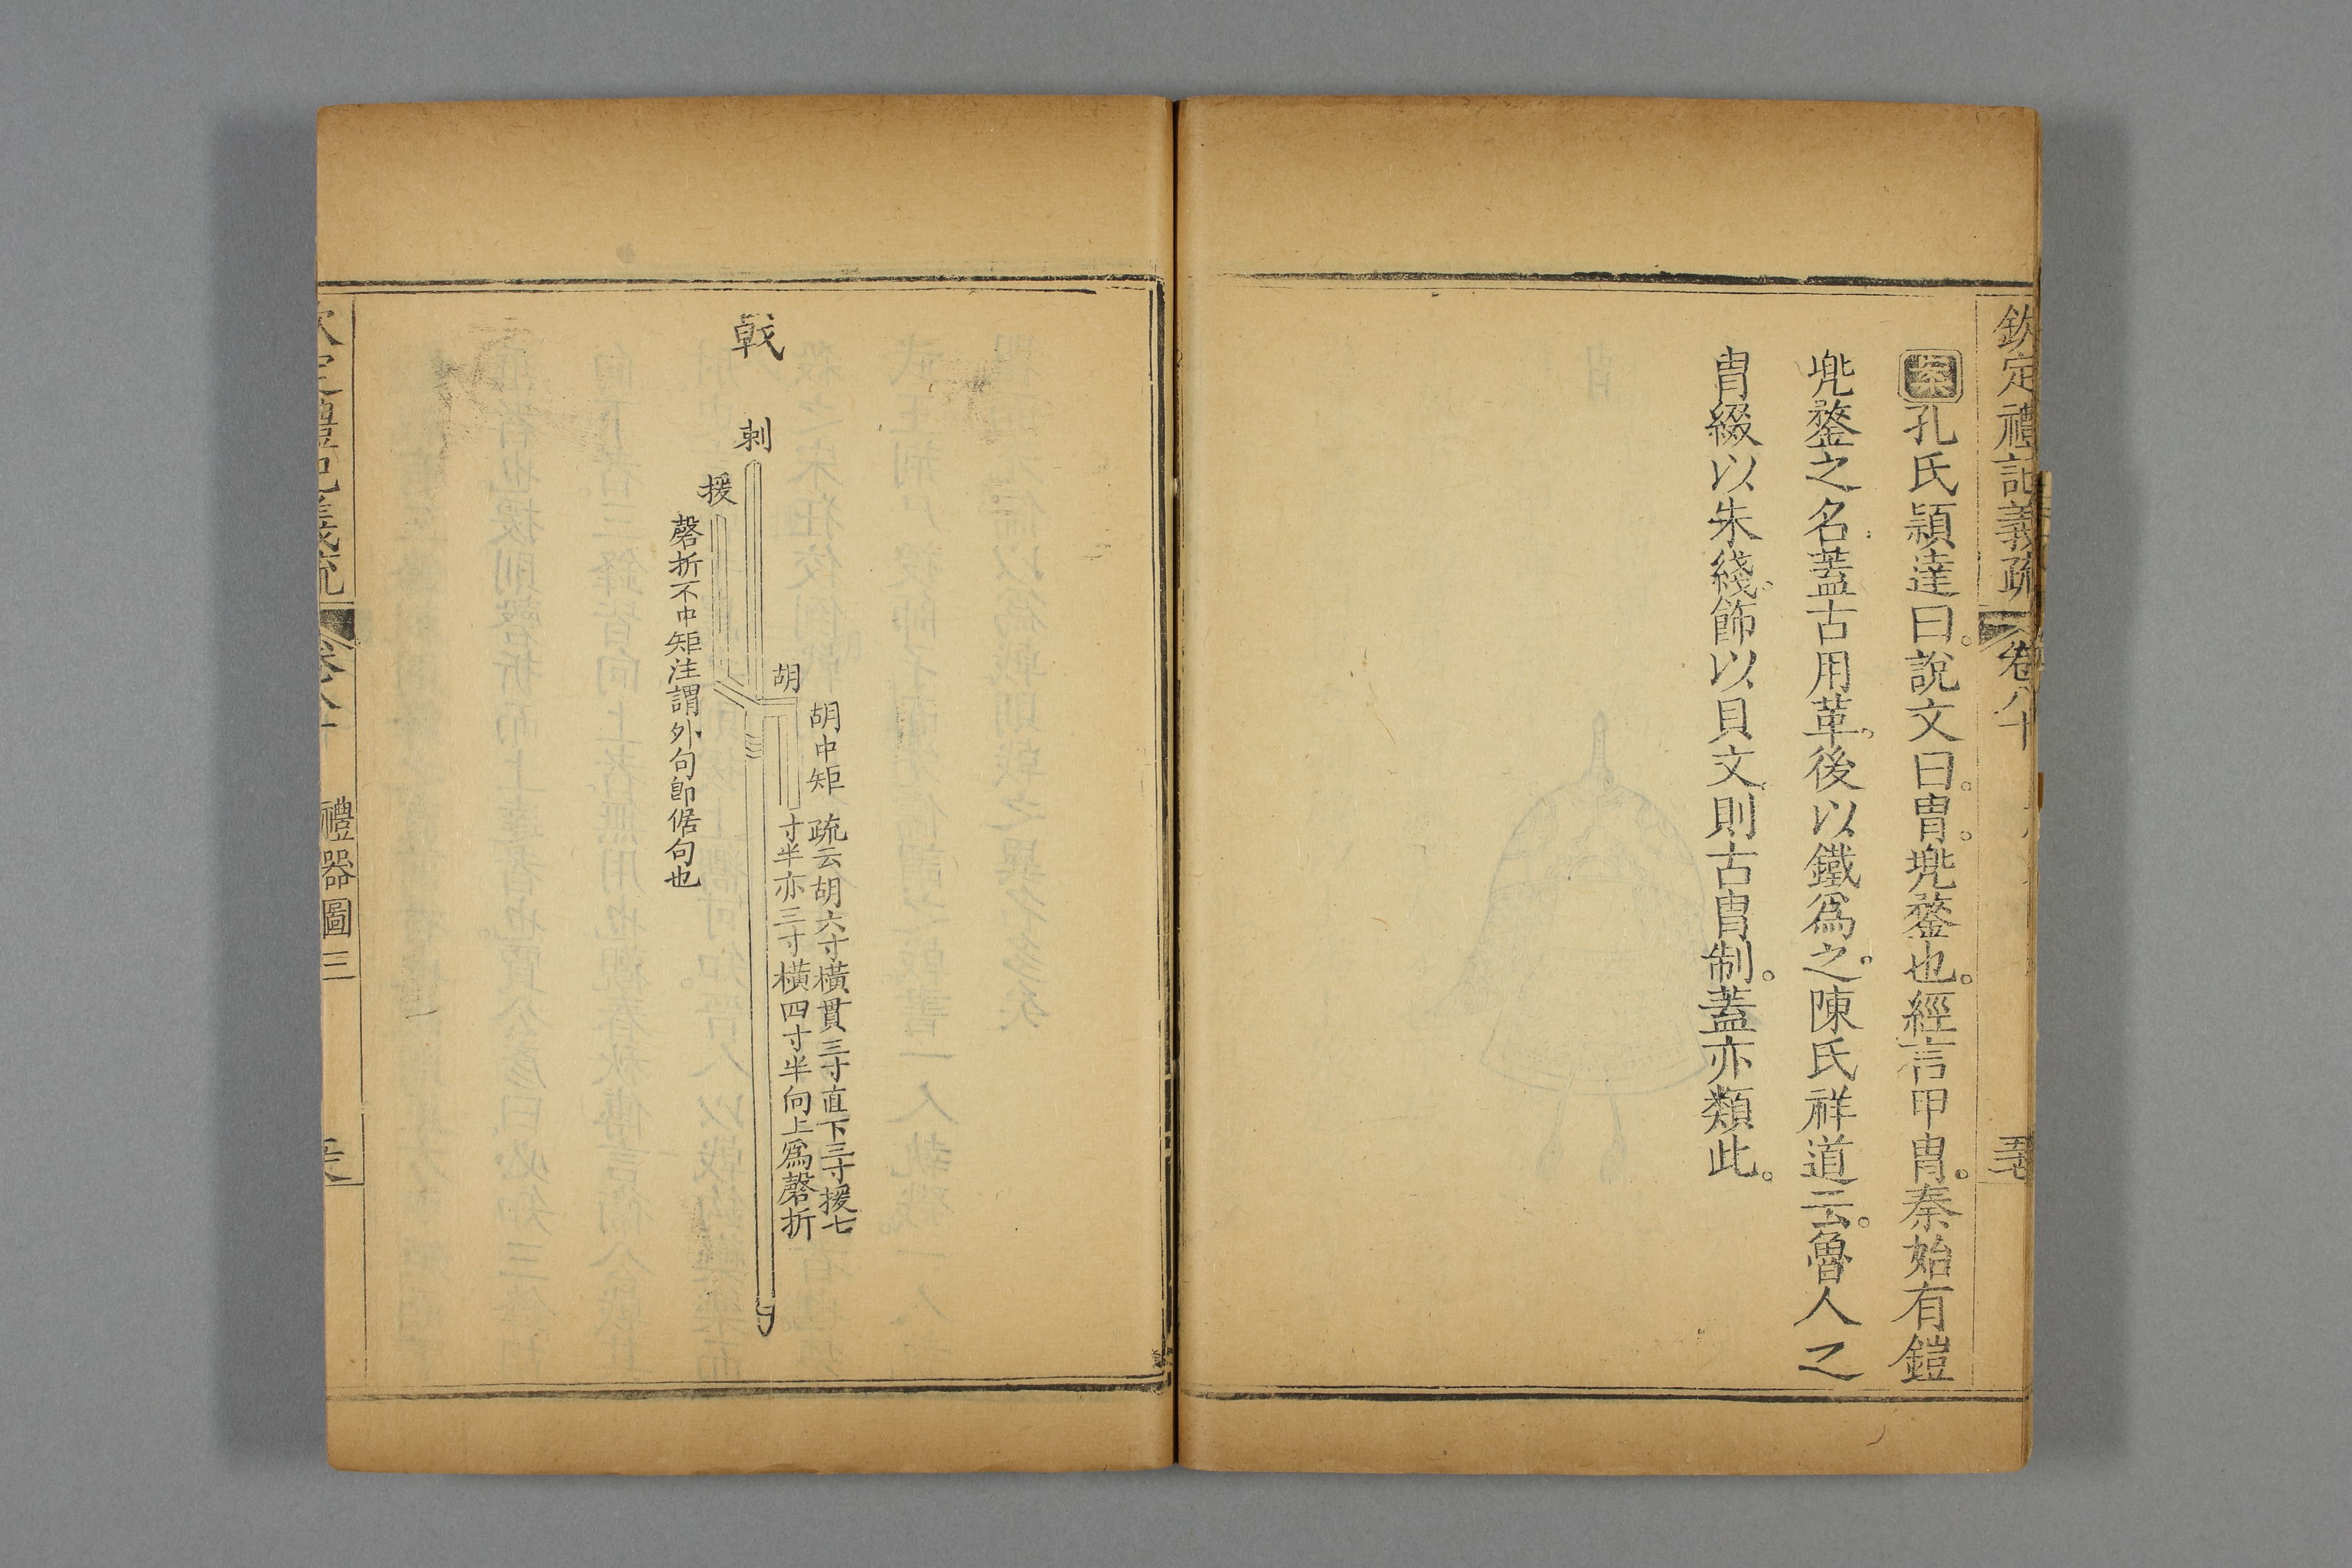 欽定禮記義疏 卷八十
案孔氏穎達曰。說文曰。冑。兠鍪也。經言甲冑。秦始有鎧
兠鍪之名。蓋古用革。後以鐵爲之。陳氏祥道云。魯人之
冑綴以朱綫。飾以貝文。則古冑制。蓋亦類此。
戟
刺
援
胡
胡中矩 疏云胡六寸橫貫三寸直下三寸援七
寸半亦三寸橫四寸半向上爲磬折
磬折不中矩注謂外句卽倨句也
定禮記義疏 卷八十 禮器圖三